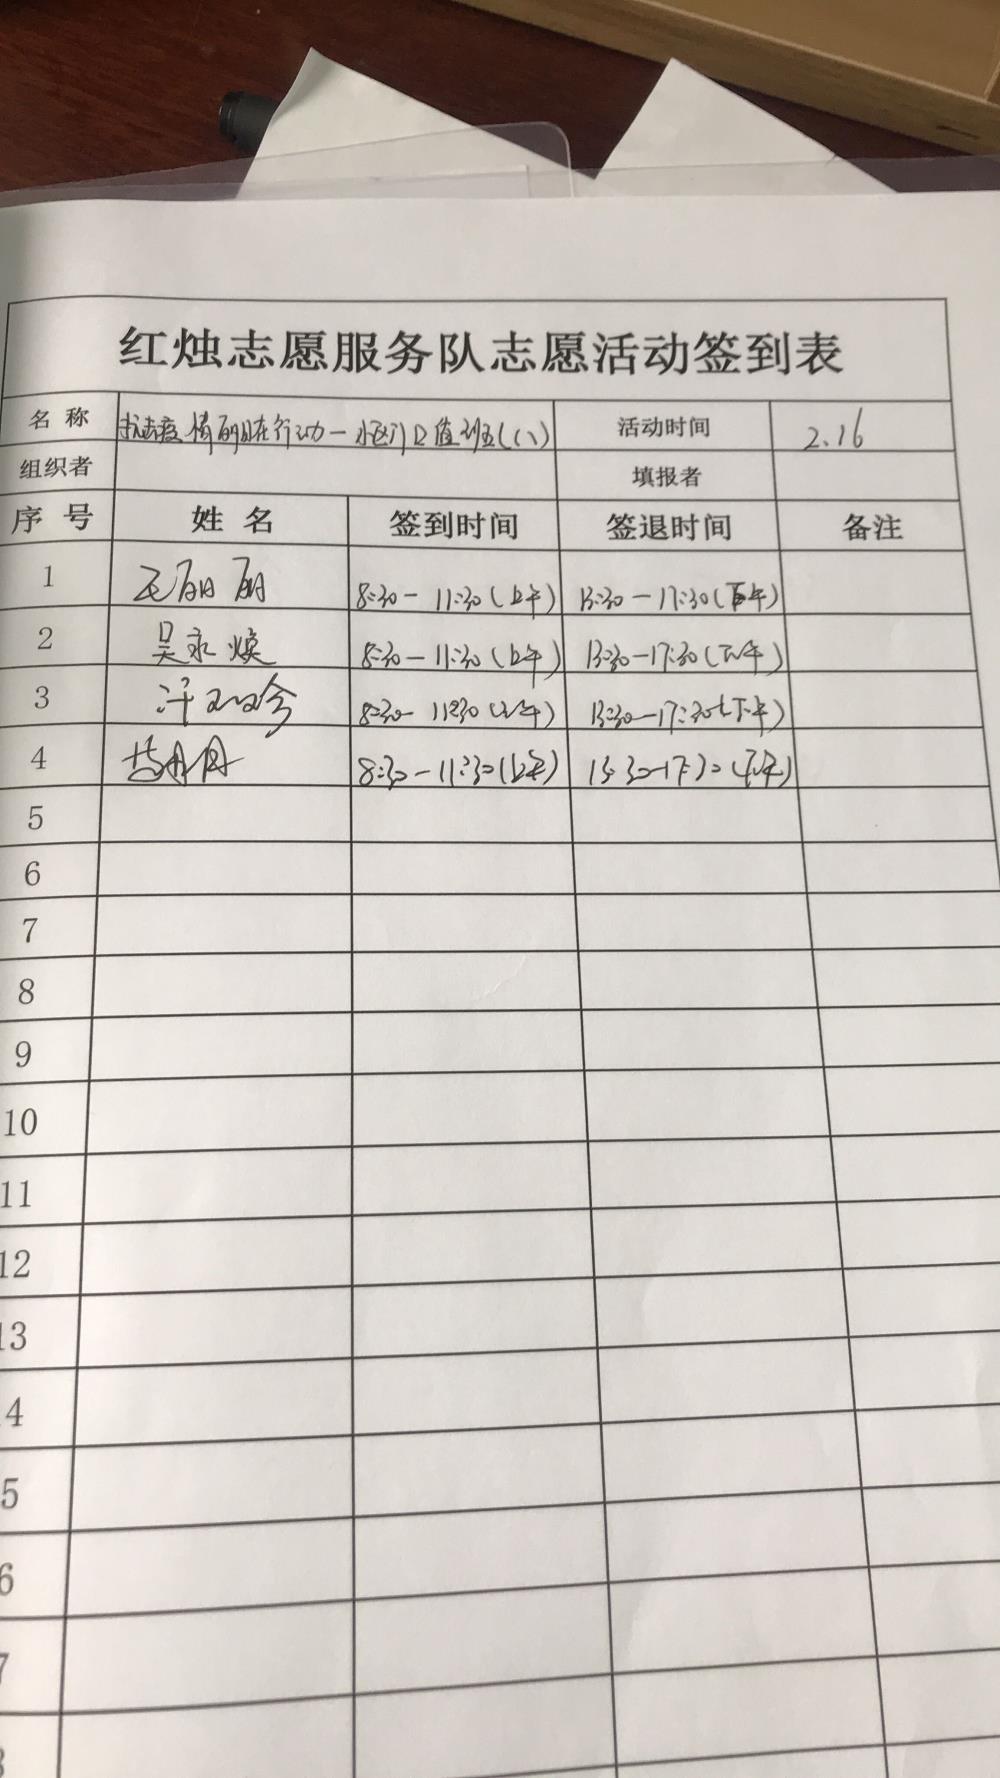 红烛志愿服务队志愿活动签到表
名称 抗击疫情 在行动一小区门口值班(八) 活动时间 2.16
组织者 填报者
序号 姓名 签到时间 签退时间 备注
1 丽丽 8:30-11:30(上午) 13:30-17:30(下午)
2 吴永焕 8:30-11:30(上午) 13:30-17:30(下午)
3 8:30-11:30(上午) 13:30-17:30(下午)
4 8:30-11:30(上午) 13:30-17:30(下午)
5
6
7
8
9
10
11
12
13
4
5
6
7